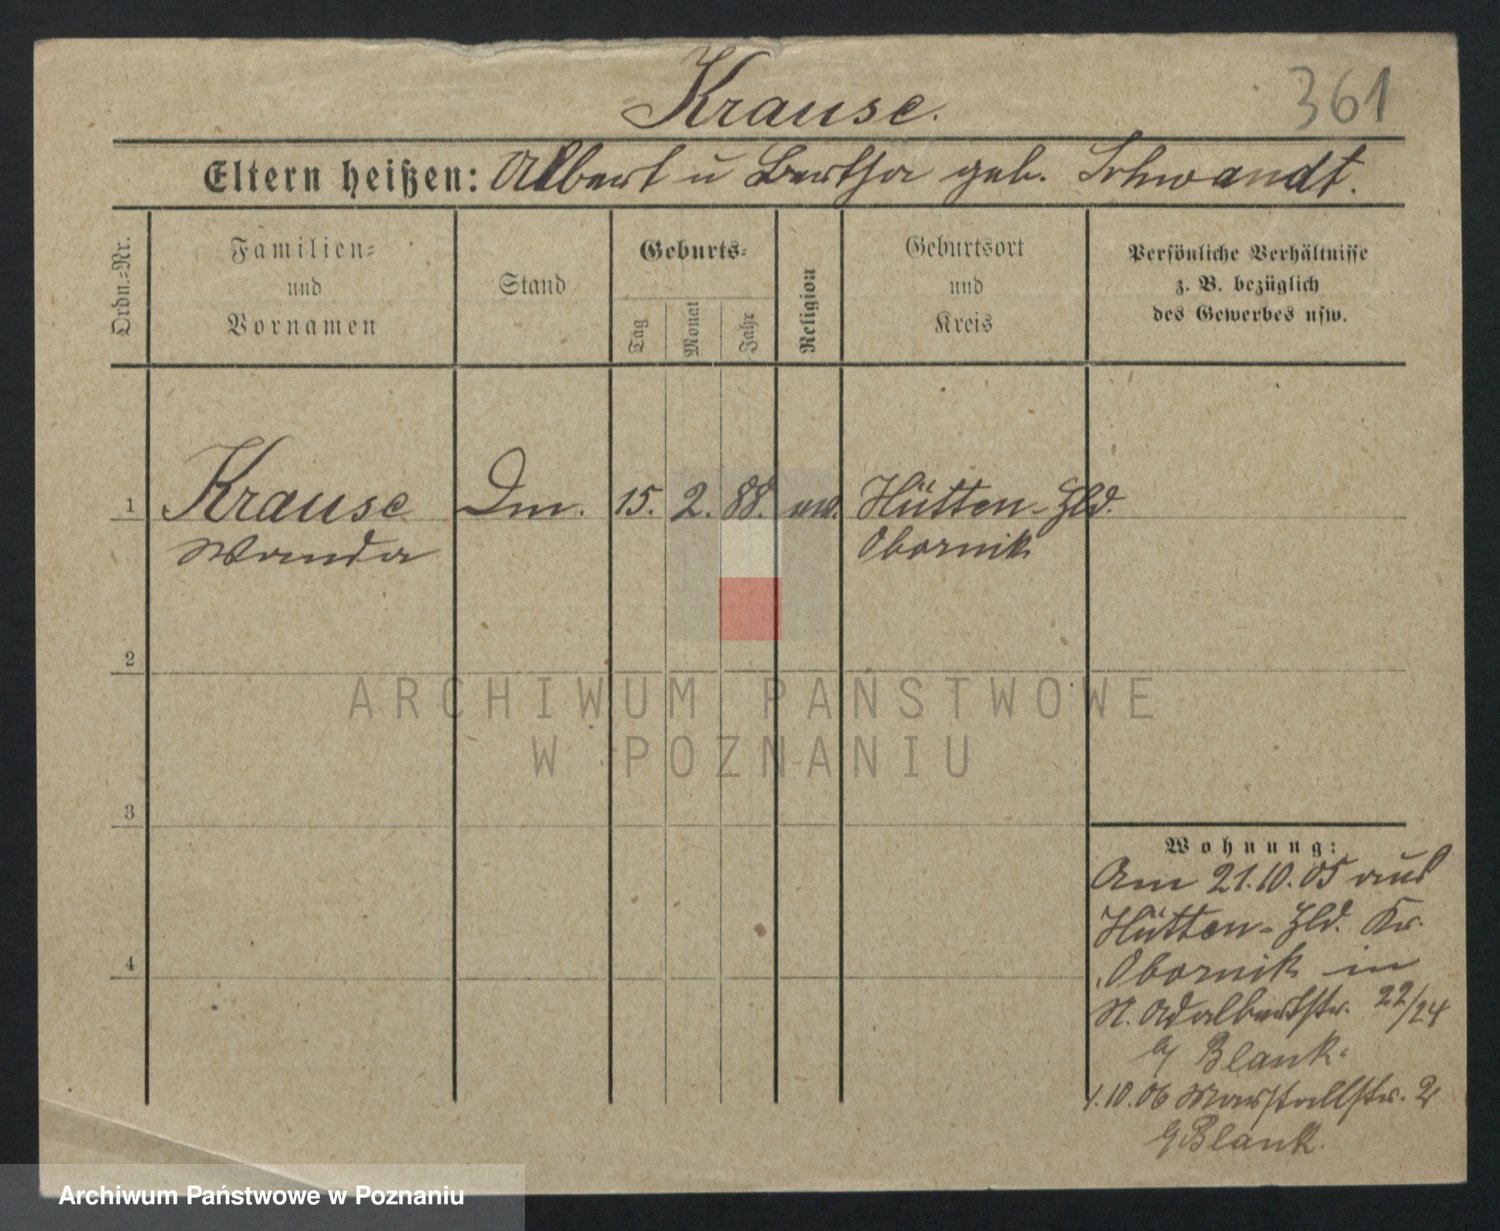 Krause.
361
Eltern heißen: Albert u Bertha geb. Schwandt.
Ordn.-Nr.
Familien-
und
Vornamen
Stand
Geburts-
Tag
Monat
Jahr
Religion
Geburtsort
und
Kreis
Persönliche Verhältnisse
z. B. bezüglich
des Gewerbes usw.
1 Krause Dm. 15. 2. 88. Hütten-Hld.
Wanda Obornik
2
3
4
ARCHIWUM PAŃSTWOWE
W POZNANIU
Wohnung:
Am 21.10.05 aus
Hütten-Hld. Kr.
Obornik in
St. Adalbertstr. 22/24
b/ Blank.
1.10.06 Marstallstr. 2
b/ Blank.
Archiwum Państwowe w Poznaniu